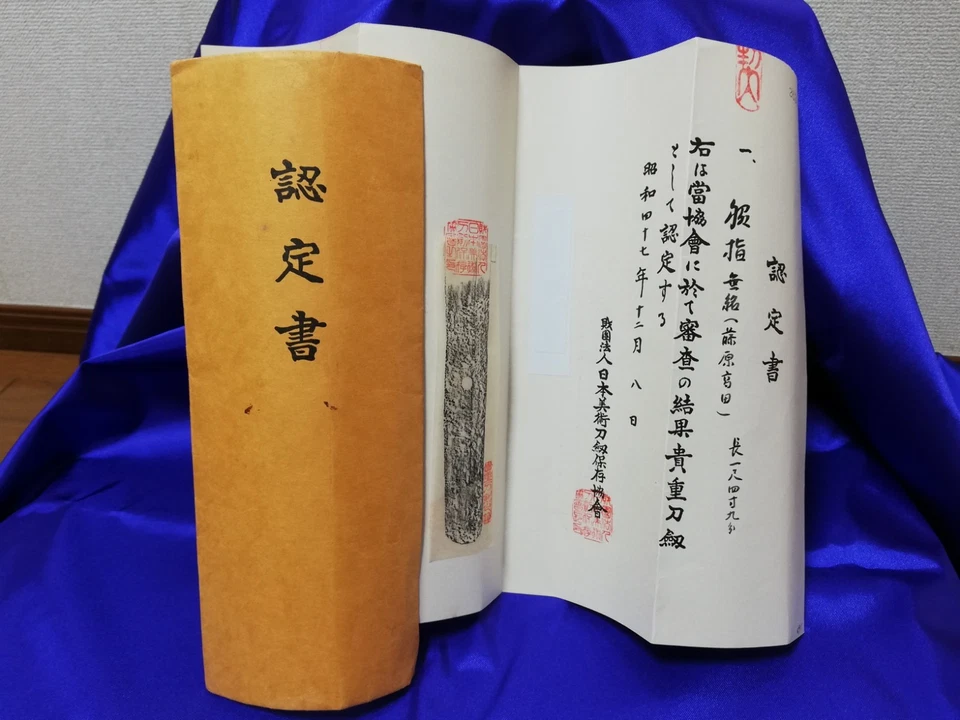 認定書
一、脇指 無銘(藤原高田) 長一尺四寸九分
右は當協會に於て審査の結果貴重刀劔
として認定する
昭和四十七年十二月八日
財團法人日本美術刀劔保存協會
認定書